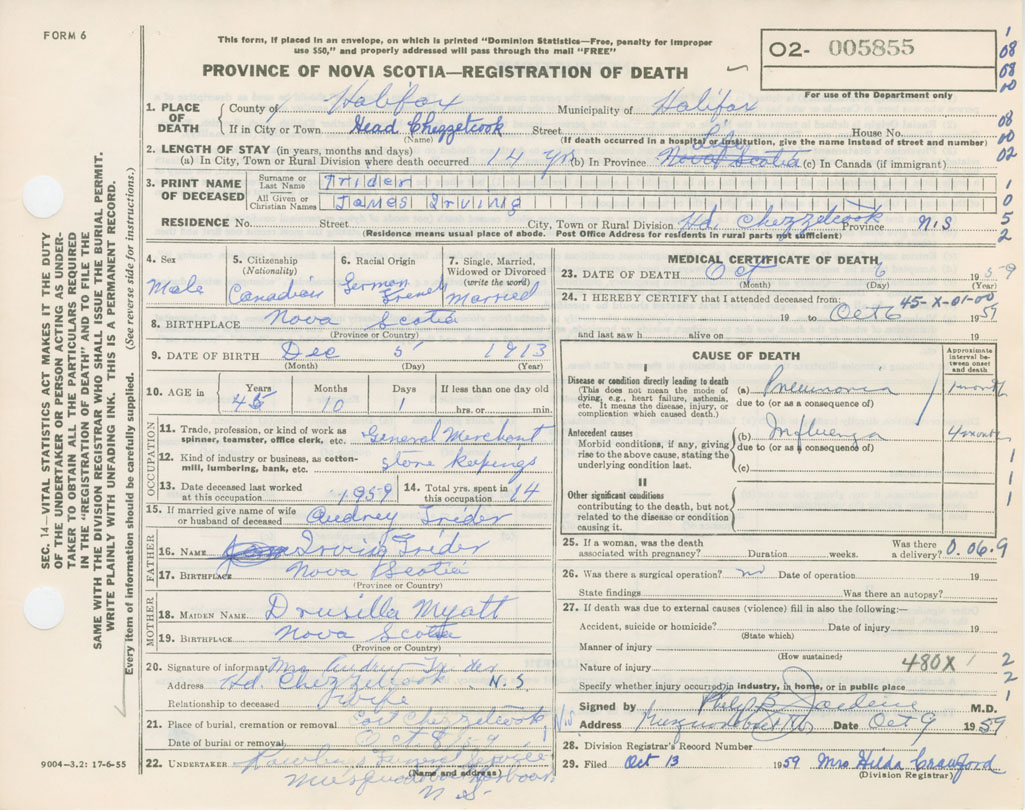 FORM 6
This form, if placed in an envelope, on which is printed "Dominion Statistics—Free, penalty for improper
use $50," and properly addressed will pass through the mail "FREE"
O2- 005855
For use of the Department only
PROVINCE OF NOVA SCOTIA—REGISTRATION OF DEATH
1. PLACE OF DEATH
County of Halifax Municipality of Halifax
If in City or Town Head Chezzetcook Street House No.
(Name) (If death occurred in a hospital or institution, give the name instead of street and number)
2. LENGTH OF STAY (in years, months and days)
(a) In City, Town or Rural Division where death occurred 14 yrs (b) In Province Life Nova Scotia (c) In Canada (if immigrant)
3. PRINT NAME OF DECEASED
Surname or Last Name Trider
All Given or Christian Names James Irving
RESIDENCE No. Street City, Town or Rural Division Hd. Chezzetcook Province N.S
(Residence means usual place of abode. Post Office Address for residents in rural parts not sufficient)
4. Sex Male
5. Citizenship (Nationality) Canadian
6. Racial Origin German French
7. Single, Married, Widowed or Divorced (write the word) Married
8. BIRTHPLACE Nova Scotia
(Province or Country)
9. DATE OF BIRTH Dec 5 1913
(Month) (Day) (Year)
10. AGE in Years 45 Months 10 Days 1 If less than one day old hrs. or min.
OCCUPATION
11. Trade, profession, or kind of work as spinner, teamster, office clerk, etc. General Merchant
12. Kind of industry or business, as cotton-mill, lumbering, bank, etc. store keepings
13. Date deceased last worked at this occupation 1959
14. Total yrs. spent in this occupation 14
15. If married give name of wife or husband of deceased Audrey Trider
FATHER
16. NAME Irvin Trider
17. BIRTHPLACE Nova Scotia
(Province or Country)
MOTHER
18. MAIDEN NAME Drusilla Myatt
19. BIRTHPLACE Nova Scotia
(Province or Country)
20. Signature of informant Mrs Audrey Trider
Address Hd. Chezzetcook N.S.
Relationship to deceased Wife
21. Place of burial, cremation or removal East Chezzetcook N.S
Date of burial or removal Oct 8
22. UNDERTAKER Funeral Service
(Name and address)
Musquodoboit Harbour
N S
MEDICAL CERTIFICATE OF DEATH
23. DATE OF DEATH Oct 6 1959
(Month) (Day) (Year)
24. I HEREBY CERTIFY that I attended deceased from:
45-X-01-00
19 to Oct 6 1959
and last saw h alive on 19
CAUSE OF DEATH
Approximate interval between onset and death
I
Disease or condition directly leading to death
(This does not mean the mode of dying, e.g., heart failure, asthenia, etc. It means the disease, injury, or complication which caused death.)
(a) Pneumonia 1 month
due to (or as a consequence of)
Antecedent causes
Morbid conditions, if any, giving rise to the above cause, stating the underlying condition last.
(b) Influenza 4 months
due to (or as a consequence of)
(c)
II
Other significant conditions
contributing to the death, but not related to the disease or condition causing it.
25. If a woman, was the death associated with pregnancy? Duration weeks. Was there a delivery? 0.06.9
26. Was there a surgical operation? no Date of operation 19
State findings Was there an autopsy?
27. If death was due to external causes (violence) fill in also the following:—
Accident, suicide or homicide? Date of injury 19
(State which)
Manner of injury
(How sustained)
Nature of injury 480X
Specify whether injury occurred in industry, in home, or in public place
Signed by M.D.
Address Date Oct 9 1959
28. Division Registrar's Record Number
29. Filed Oct 13 1959 Mrs Hilda Crawford
(Division Registrar)
SEC. 14—VITAL STATISTICS ACT MAKES IT THE DUTY
OF THE UNDERTAKER OR PERSON ACTING AS UNDER-
TAKER TO OBTAIN ALL THE PARTICULARS REQUIRED
IN THE "REGISTRATION OF DEATH" AND TO FILE THE
SAME WITH THE DIVISION REGISTRAR WHO SHALL ISSUE THE BURIAL PERMIT.
WRITE PLAINLY WITH UNFADING INK. THIS IS A PERMANENT RECORD.
Every item of information should be carefully supplied. (See reverse side for instructions.)
9004-3.2: 17-6-55
1
08
08
00
08
00
02
1
0
5
2
1
1
1
1
2
2
1